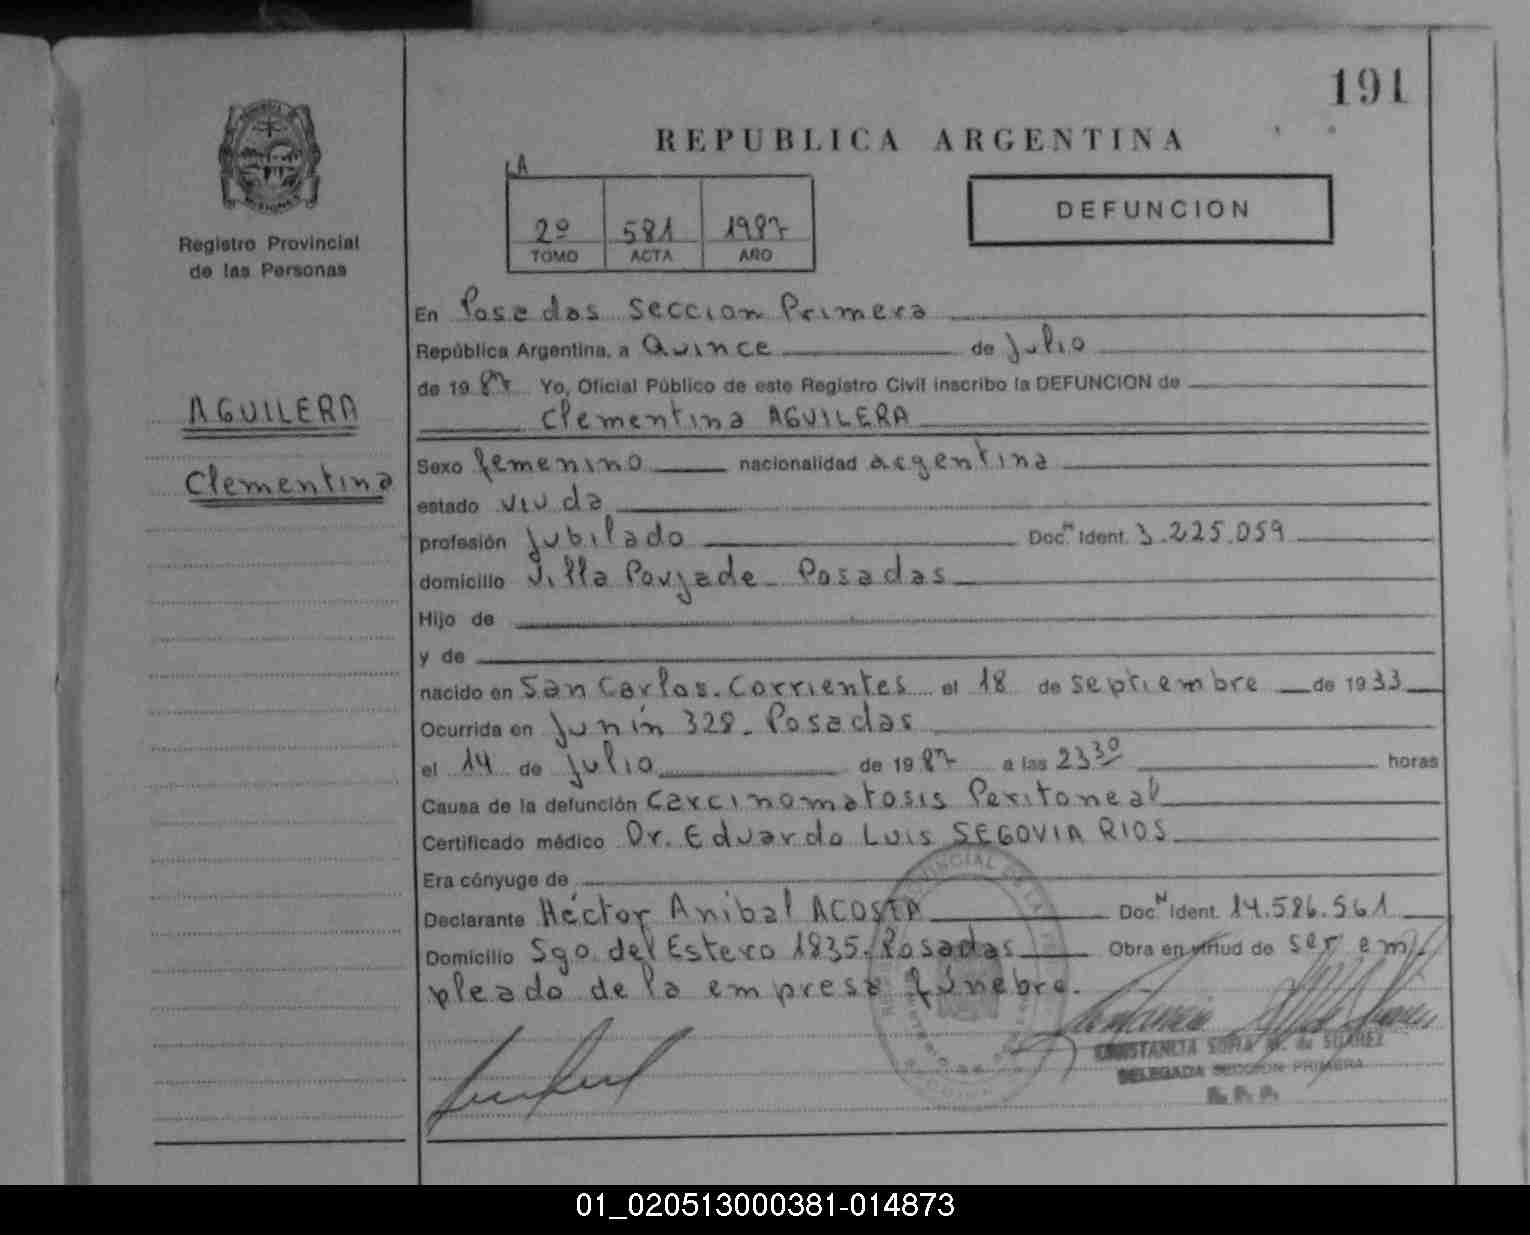 191
REPUBLICA ARGENTINA
LA
2º 581 1987
TOMO ACTA AÑO
DEFUNCION
Registro Provincial
de las Personas
AGUILERA
Clementina
En Posadas Seccion Primera
República Argentina, a Quince de Julio
de 1987 Yo, Oficial Público de este Registro Civil inscribo la DEFUNCION de
Clementina AGUILERA
Sexo femenino nacionalidad argentina
estado viuda
profesión Jubilado Doc. N Ident. 3.225.059
domicilio Villa Poujade - Posadas
Hijo de
y de
nacido en San Carlos. Corrientes el 18 de septiembre de 1933
Ocurrida en Junín 328 - Posadas
el 14 de Julio de 1987 a las 23 30 horas
Causa de la defunción Carcinomatosis Peritoneal
Certificado médico Dr. Eduardo Luis SEGOVIA RIOS
Era cónyuge de
Declarante Héctor Anibal ACOSTA Doc. N Ident. 14.586.561
Domicilio Sgo. del Estero 1835. Posadas Obra en virtud de ser em
pleado de la empresa fúnebre.
CONSTANCIA SOFIA M. de SUAREZ
DELEGADA SECCION PRIMERA
R. P. P.
01_020513000381-014873